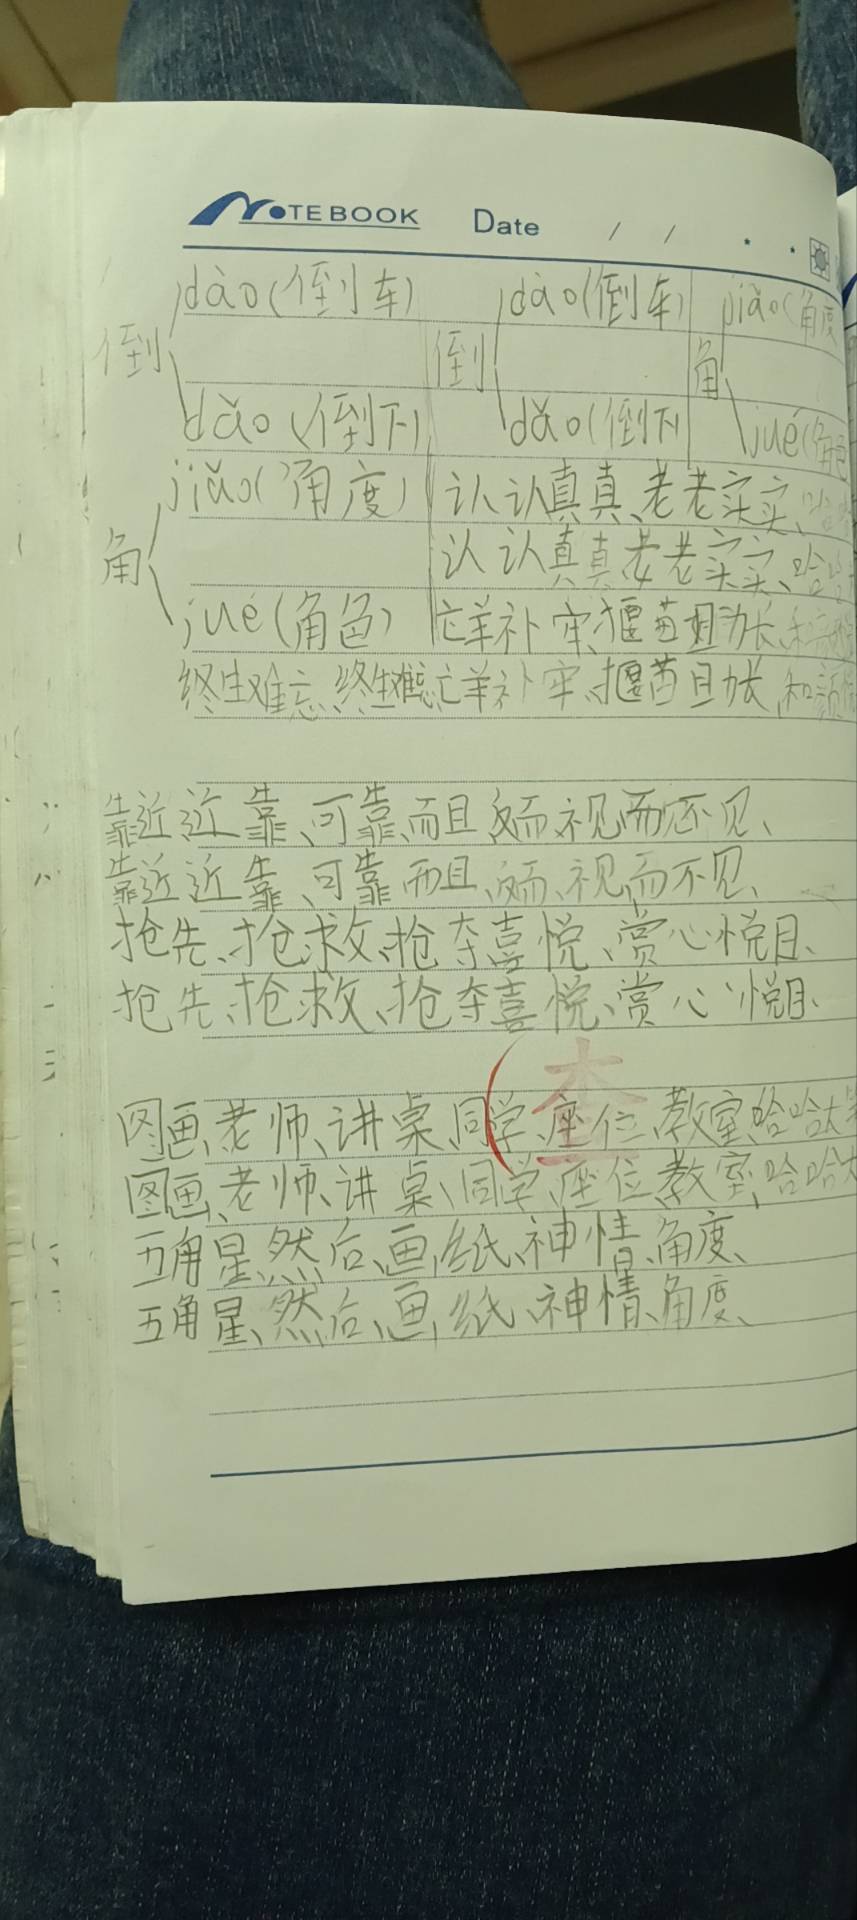 NOTEBOOK Date / /
dào(倒车) dào(倒车) jiǎo(角度
倒 倒 角
dǎo(倒下) dǎo(倒下) jué(角色
jiǎo(角度) 认认真真、老老实实、哈
角 认认真真、老老实实、哈哈
jué(角色) 亡羊补牢、揠苗助长、和
终生难忘、终生难忘、亡羊补牢、揠苗助长、和颜
靠近、近靠、可靠、而且、反而、视而不见、
靠近、近靠、可靠、而且、反而、视而不见、
抢先、抢救、抢夺、喜悦、赏心悦目、
抢先、抢救、抢夺、喜悦、赏心悦目、
图画、老师、讲桌、同学、座位、教室、哈哈大笑
查
图画、老师、讲桌、同学、座位、教室、哈哈大
五角星、然后、画、纸、神情、角度、
五角星、然后、画、纸、神情、角度、